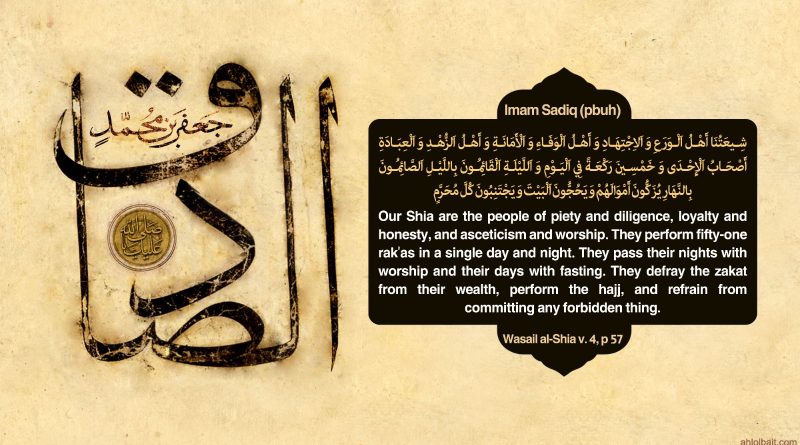 الصادق
جعفر بن محمّدٍ
صلى الله
عليك يا
Imam Sadiq (pbuh)
شِيعَتُنَا أَهْلُ الْوَرَعِ وَ الِاجْتِهَادِ وَ أَهْلُ الْوَفَاءِ وَ الْأَمَانَةِ وَ أَهْلُ الزُّهْدِ وَ الْعِبَادَةِ
أَصْحَابُ الْإِحْدَى وَ خَمْسِينَ رَكْعَةً فِي الْيَوْمِ وَ اللَّيْلَةِ الْقَائِمُونَ بِاللَّيْلِ الصَّائِمُونَ
بِالنَّهَارِ يُزَكُّونَ أَمْوَالَهُمْ وَ يَحُجُّونَ الْبَيْتَ وَ يَجْتَنِبُونَ كُلَّ مُحَرَّمٍ
Our Shia are the people of piety and diligence, loyalty and
honesty, and asceticism and worship. They perform fifty-one
rak'as in a single day and night. They pass their nights with
worship and their days with fasting. They defray the zakat
from their wealth, perform the hajj, and refrain from
committing any forbidden thing.
Wasail al-Shia v. 4, p 57
ahlolbait.com